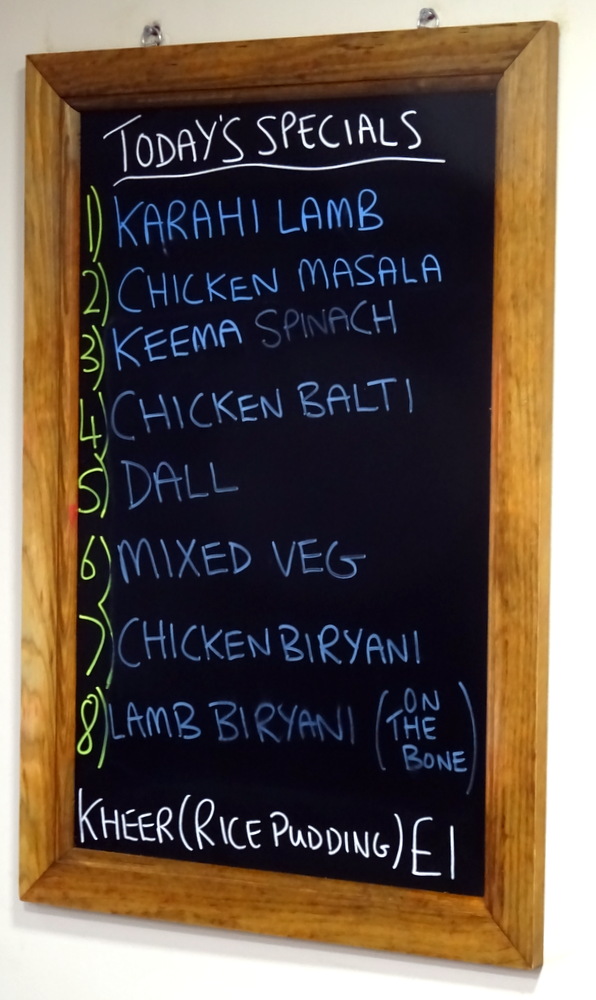 TODAY'S SPECIALS
1) KARAHI LAMB
2) CHICKEN MASALA
3) KEEMA SPINACH
4) CHICKEN BALTI
5) DALL
6) MIXED VEG
7) CHICKEN BIRYANI
8) LAMB BIRYANI (ON THE BONE)
KHEER (RICE PUDDING) £1